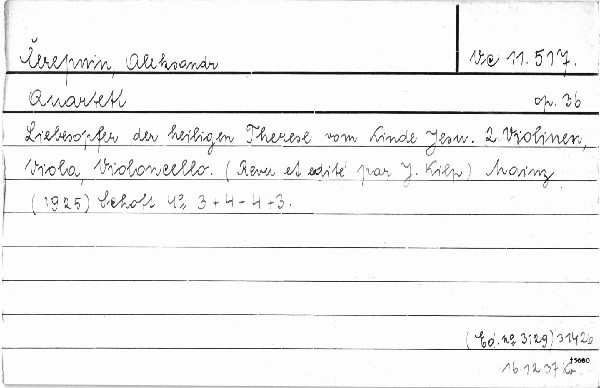 Čerepnin, Aleksandr Vc 11.517.
Quartett op. 36
Liebesopfer der heiligen Therese vom Kinde Jesu. 2 Violinen,
Viola, Violoncello. (Revu et edité par J. Kilp) Mainz
(1925) Schott 4º 3+4-4+3.
(Ed. nº 3129) 31426
15660
16.12.37